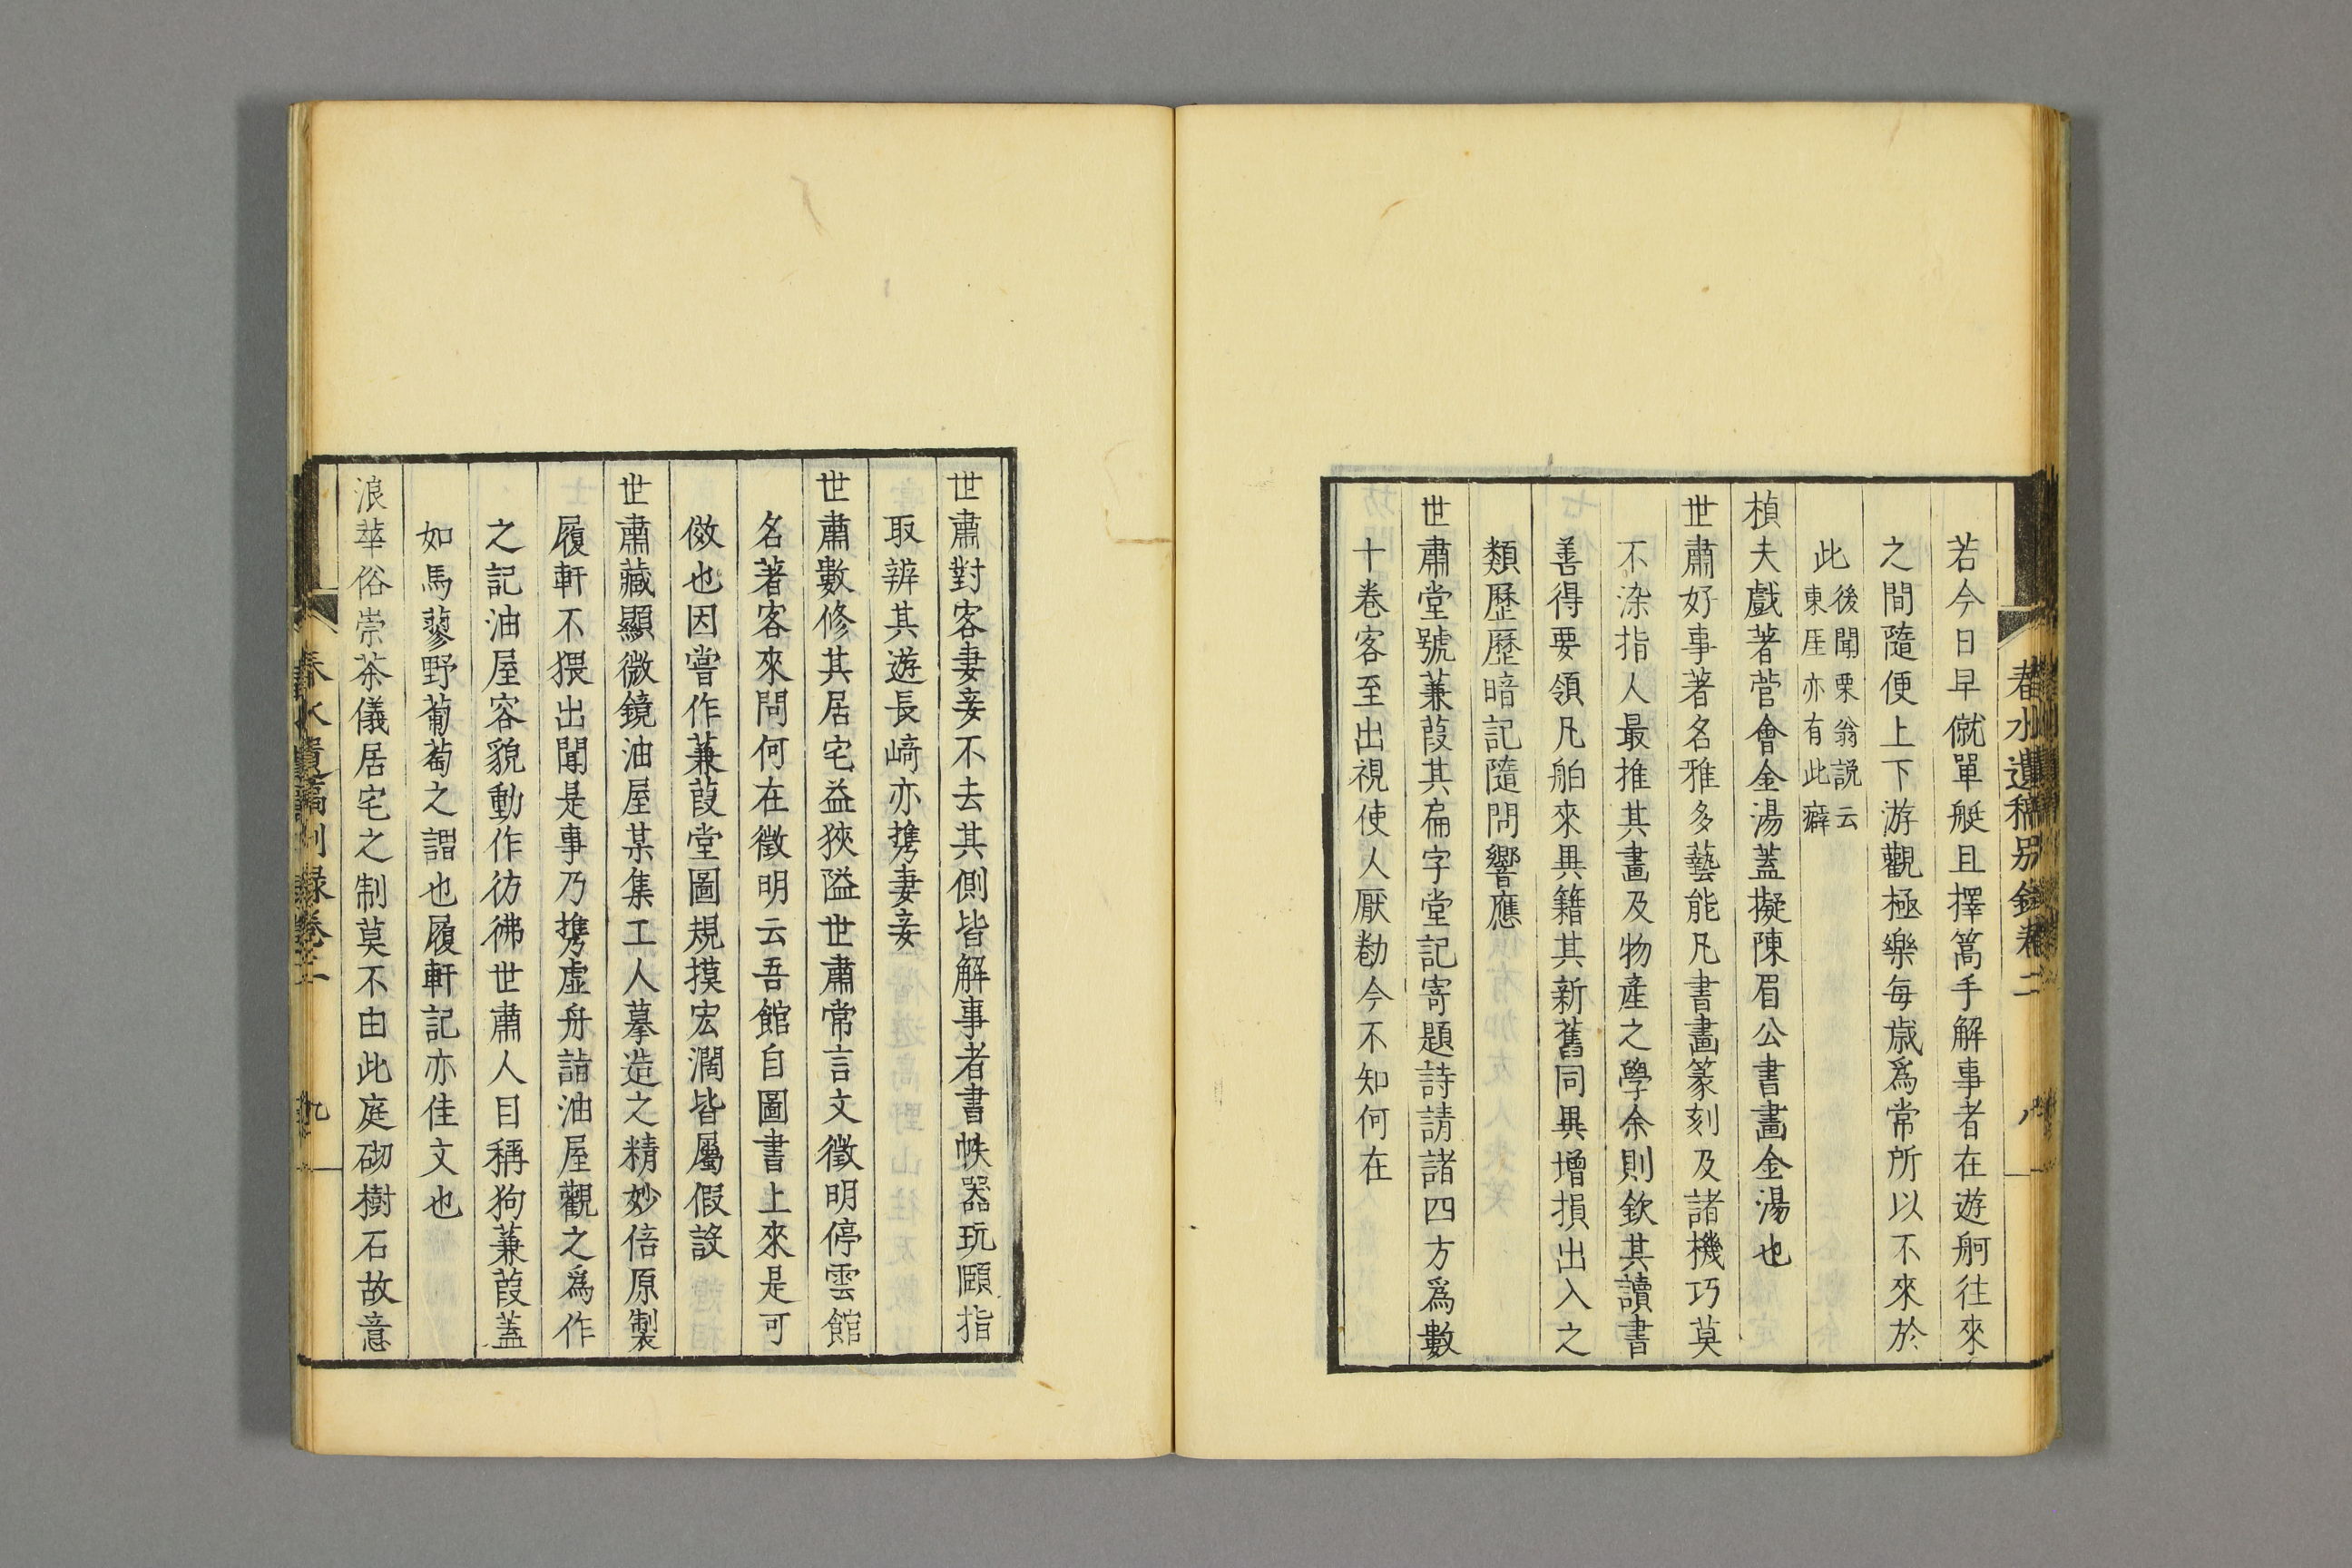 若今日早僦單艇且擇篙手解事者在遊舸往來
之間隨便上下游觀極樂每歲爲常所以不來於
此後聞栗翁説云東厓亦有此癖
楨夫戲著菅會金湯蓋擬陳眉公書畫金湯也
世肅好事著名雅多藝能凡書畫篆刻及諸機巧莫
不染指人最推其畫及物産之學余則欽其讀書
善得要領凡舶來異籍其新舊同異增損出入之
類歷歷暗記隨問響應
世肅堂號蒹葭其扁字堂記寄題詩請諸四方爲數
十卷客至出視使人厭勌今不知何在
春水遺稿別錄卷二
八
世肅對客妻妾不去其側皆解事者書帙器玩頤指
取辨其遊長﨑亦携妻妾
世肅數修其居宅益狹隘世肅常言文徵明停雲館
名著客來問何在徵明云吾館自圖書上來是可
倣也因嘗作蒹葭堂圖規摸宏濶皆屬假設
世肅藏顯微鏡油屋某集工人摹造之精妙倍原製
履軒不猥出聞是事乃携虛舟詣油屋觀之爲作
之記油屋容貌動作彷彿世肅人目稱狗蒹葭蓋
如馬蓼野葡萄之謂也履軒記亦佳文也
浪華俗崇茶儀居宅之制莫不由此庭砌樹石故意
春水遺稿別錄卷二
九